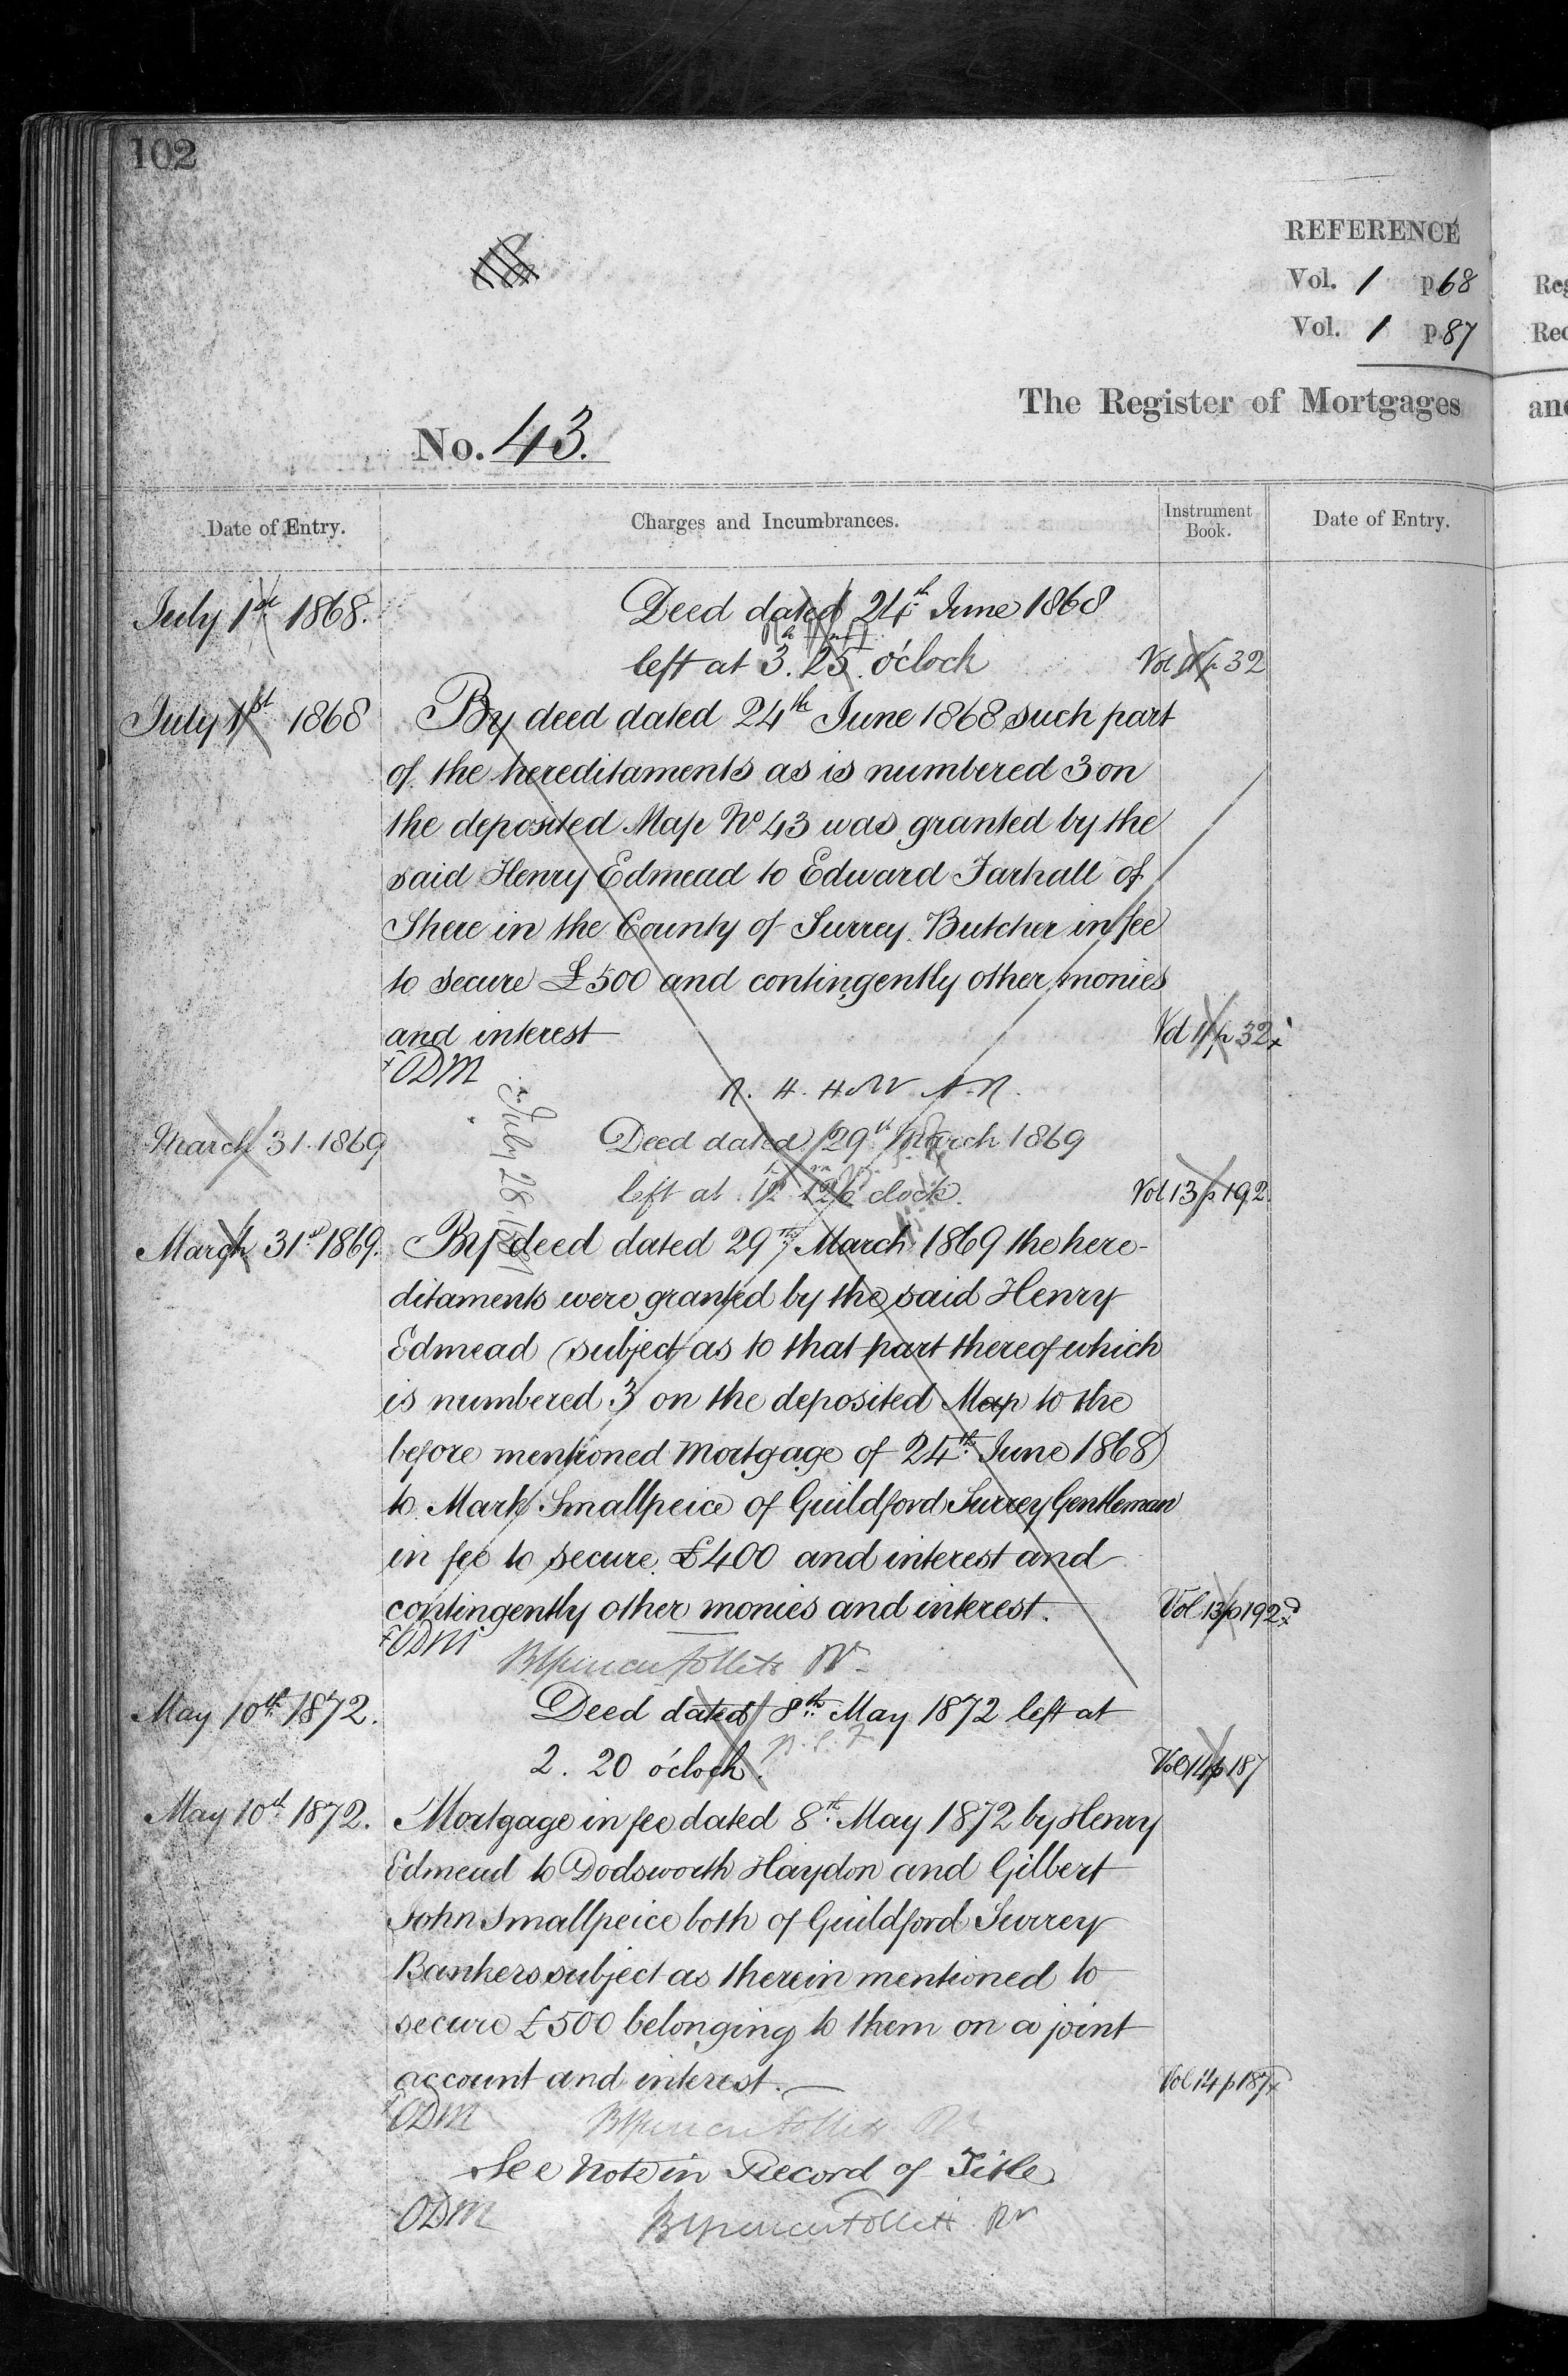 102
REFERENCE
Vol. 1 p. 68
Vol. 1 p. 87
The Register of Mortgages
No. 43.
Date of Entry.
Charges and Incumbrances.
Instrument Book.
Date of Entry.
July 1st 1868.
Deed dated 24th June 1868
left at 3. 25. o'clock
Vol 11 p 32
July 1st 1868
By deed dated 24th June 1868 such part
of the hereditaments as is numbered 3 on
the deposited Map No 43 was granted by the
said Henry Edmead to Edward Farhall of
Shere in the County of Surrey Butcher in fee
to secure £500 and contingently other monies
and interest
Vol 11 p 32
ODM
March 31. 1869
Deed dated 29th March 1869
left at 12 o'clock.
Vol 13 p 192
March 31st 1869.
By deed dated 29th March 1869 the here-
ditaments were granted by the said Henry
Edmead (subject as to that part thereof which
is numbered 3 on the deposited Map to the
before mentioned mortgage of 24th June 1868)
to Mark Smallpeice of Guildford Surrey Gentleman
in fee to secure £400 and interest and
contingently other monies and interest.
Vol 13 p 192
ODM
July 28
May 10th 1872.
Deed dated 8th May 1872 left at
2. 20 o'clock.
Vol 14 p 187
May 10th 1872.
Mortgage in fee dated 8th May 1872 by Henry
Edmead to Dodsworth Haydon and Gilbert
John Smallpeice both of Guildford Surrey
Bankers subject as therein mentioned to
secure £500 belonging to them on a joint
account and interest.
Vol 14 p 187
ODM
BSpencerfollett Rr
See Note in Record of Title
ODM
BSpencerFollett Rr